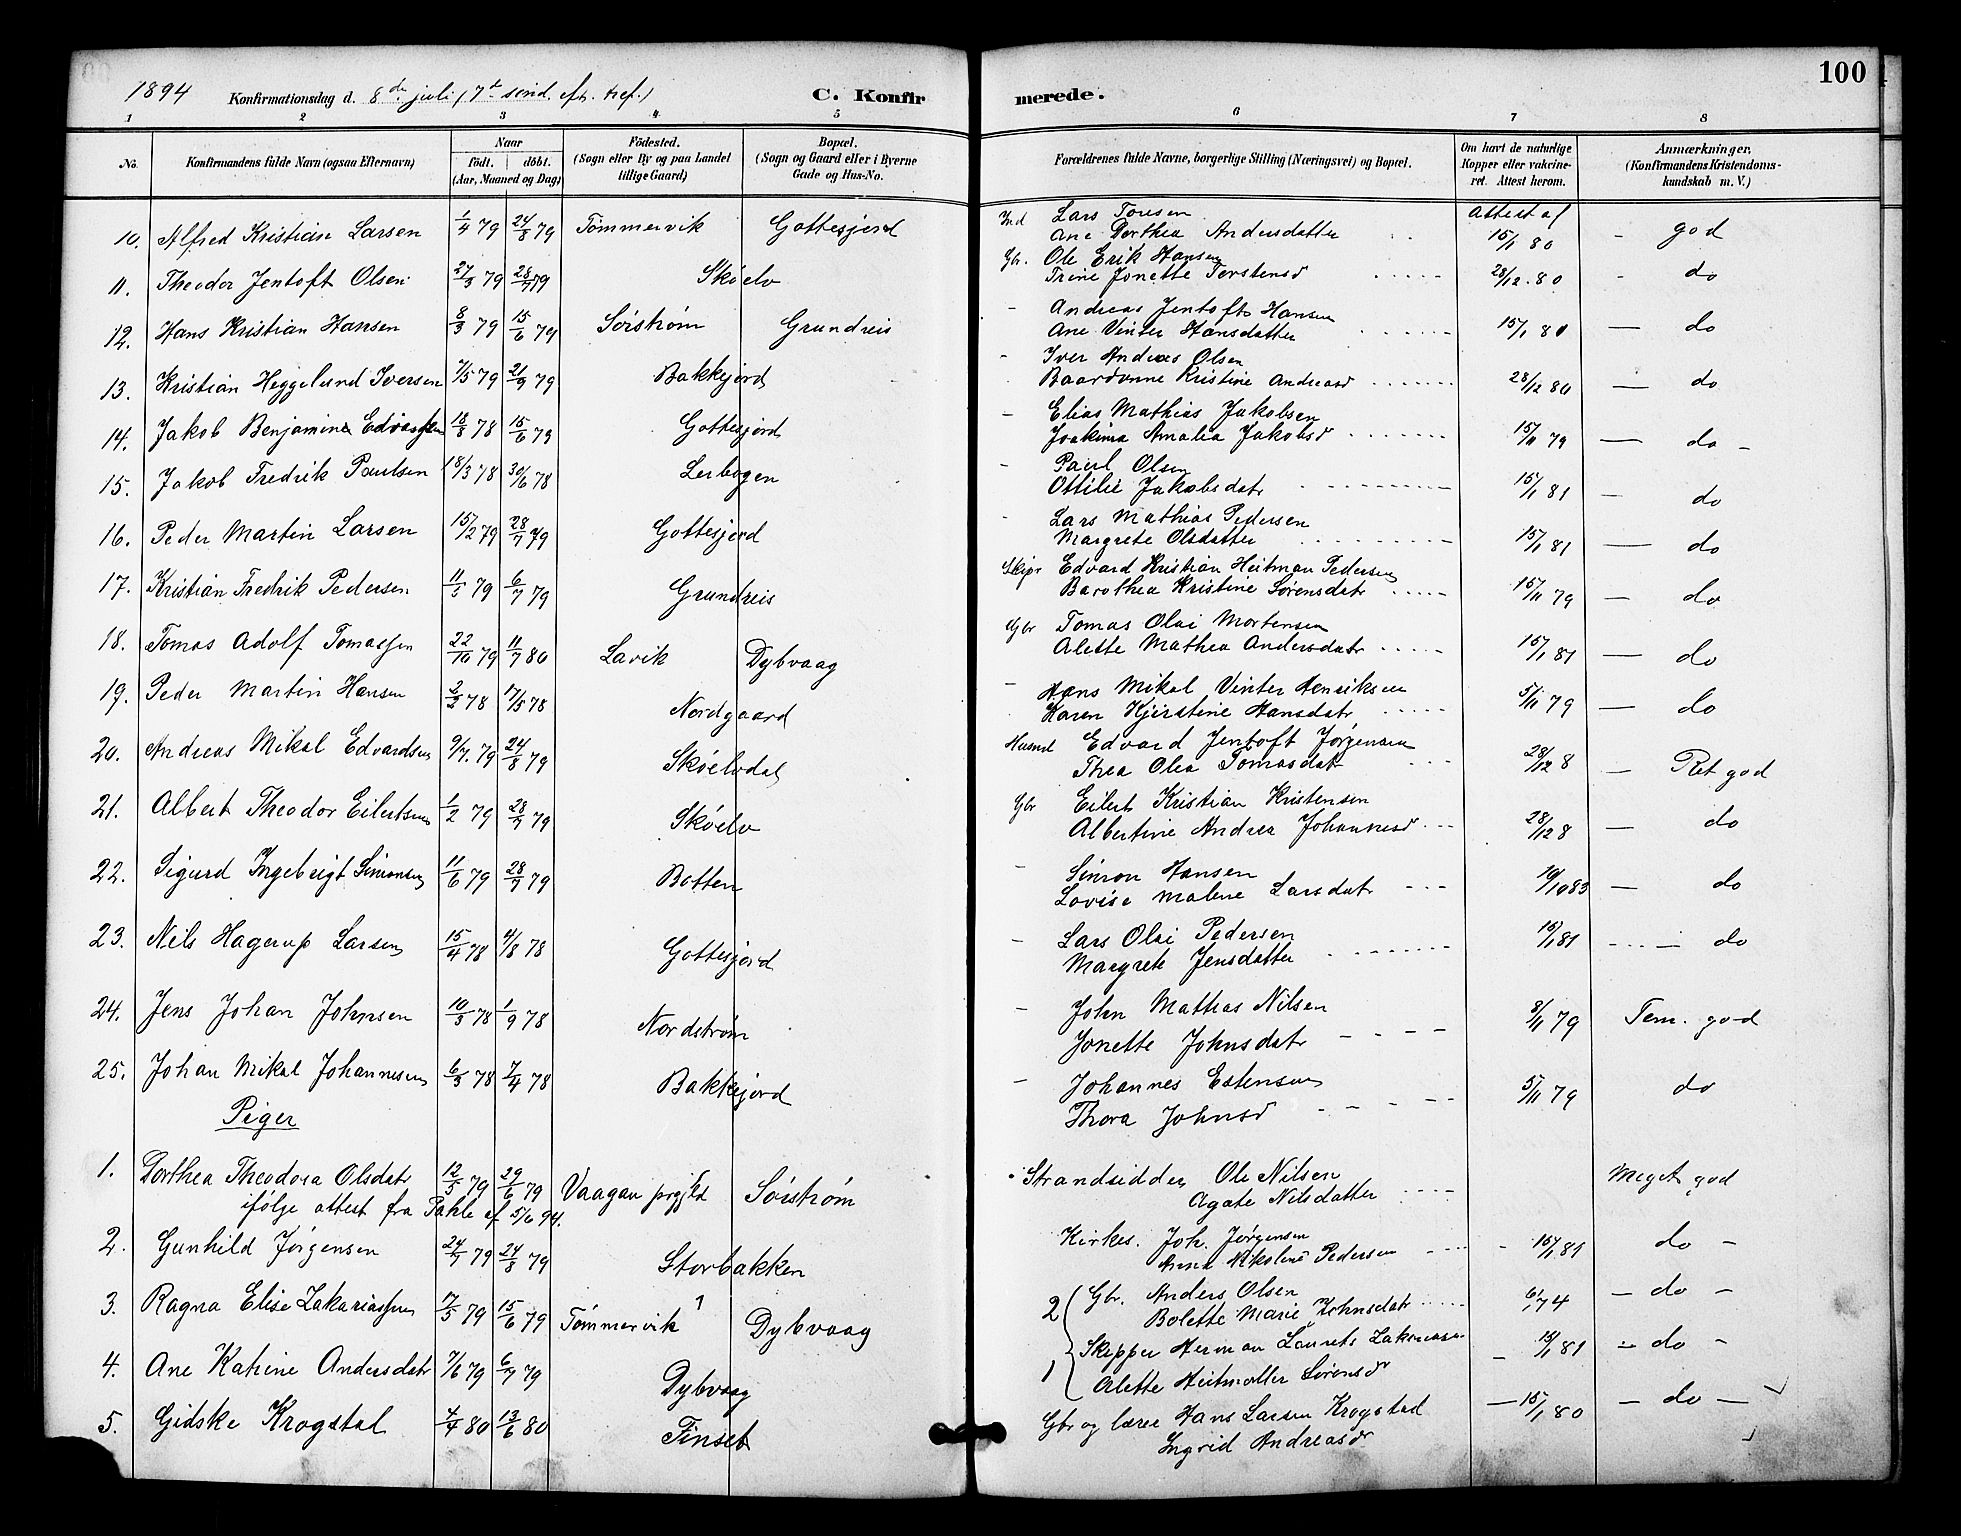 1894 Konfirmationsdag d. 8de juli (7de sönd. eft. tref.) C. Konfirmerede. 100
1 2 3 4 5 6 7 8
No. Konfirmandens fulde Navn (ogsaa Efternavn) Naar födt. döbt. (Aar, Maaned og Dag) Födested. (Sogn eller By og paa Landet tillige Gaard) Bopæl. (Sogn og Gaard eller i Byerne Gade og Hus-No. Forældrenes fulde Navne, borgerlige Stilling (Næringsvei) og Bopæl. Om havt de naturlige Kopper eller vakcineret. Attest herom. Anmærkninger. (Konfirmandens Kristendomskundskab m. V.)
10. Alfred Kristian Larsen 1/4 79 24/8 79 Tömmervik Gottesjord Ind Lars Toresen Attest af
Ane Dorthea Andersdatter 15/1 80 - god
11. Theodor Jentoft Olsen 27/3 79 28/7 79 Sköelv Gbr. Ole Erik Hansen
Trine Jonette Torstensd 28/12 80 - do
12. Hans Kristian Hansen 8/3 79 15/6 79 Sörström Grundreis - Andreas Jentoft Hansen
Ane Vinter Hansdatter 15/1 80 - do
13. Kristian Heggelund Iversen 7/5 79 21/9 79 Bakkejord - Iver Andreas Olsen
Baardonne Kristine Andreasd 28/12 80 - do
14. Jakob Benjamin Eliassen 18/8 78 15/6 79 Gottesjord - Elias Mathias Jakobsen
Joakima Amalia Jakobsd 15/11 79 - do -
15. Jakob Fredrik Paulsen 18/3 78 30/6 78 Lerbogen - Paul Olsen
Ottilie Jakobsdatr 15/1 81 - do
16. Peder Martin Larsen 15/2 79 28/7 79 Gottesjord - Lars Mathias Pedersen
Margrete Olsdatter 15/1 81 - do
17. Kristian Fredrik Pedersen 11/5 79 6/7 79 Grundreis Skipr Edvard Kristian Heitman Pedersen
Barothea Kristine Sörensdatr 15/11 79 - do
18. Tomas Adolf Tomassen 22/10 79 11/7 80 Lavik Dybvaag Gbr Tomas Olai Mortensen
Alette Mathea Andersdatr 15/1 81 - do
19. Peder Martin Hansen 2/2 78 17/5 78 Nordgaard - Hans Mikal Vinter Henriksen
Karen Kjerstine Hansdatr 5/11 79 - do
20. Andreas Mikal Edvardsen 9/7 79 24/8 79 Sköelvdal Husmd Edvard Jentoft Jörgensen
Thea Olea Tomasdatr 28/12 8 - Ret god
21. Albert Theodor Eilertsen 1/2 79 28/7 79 Sköelv Gbr Eilert Kristian Kristensen
Albertine Andrea Johannesd 28/12 8 - do
22. Sigurd Ingebrigt Simonsen 11/6 79 28/7 79 Botten - Simon Hansen
Lovise Malene Larsdatr 10/10 83 - do
23. Nils Hagerup Larsen 15/4 78 4/8 78 Gottesjord - Lars Olai Pedersen
Margrete Jensdatter 15/1 81 - do
24. Jens Johan Johnsen 10/3 78 1/9 78 Nordström - John Mathias Nilsen
Jonette Johnsdatr 8/11 79 Tem. god
25. Johan Mikal Johannesen 6/3 78 7/4 78 Bakkejord - Johannes Estensen
Thora Johnsd 5/11 79 do
Piger
1. Dorthea Theodora Olsdatr 12/5 79 29/6 79 Vaagan prgjld Sörström Strandsidder Ole Nilsen
ifölge attest fra Pahle af 5/6 94. Agate Nilsdatter Meget god
2. Gunhild Jörgensen 24/7 79 24/8 79 Storbakken Kirkes. Joh. Jörgensen
Anna Nikoline Pedersen - 15/1 81 do -
3. Ragna Elise Zakariassen 17/5 79 15/6 79 Tömmervik Dybvaag 2 Gbr. Anders Olsen
Bolette Marie Johnsdatr 6/1 74 - do -
4. Ane Katrine Andersdatr 7/6 79 6/7 79 Dybvaag 1 Skipper Herman Laurets Zakariasen
Alette Heitmöller Sörensd - 15/1 81 - do -
5. Gidske Krogstad 4/4 80 13/6 80 Finset Gbr og lærer Hans Larsen Krogstad
Ingrid Andreasdr - 15/1 80 - do -